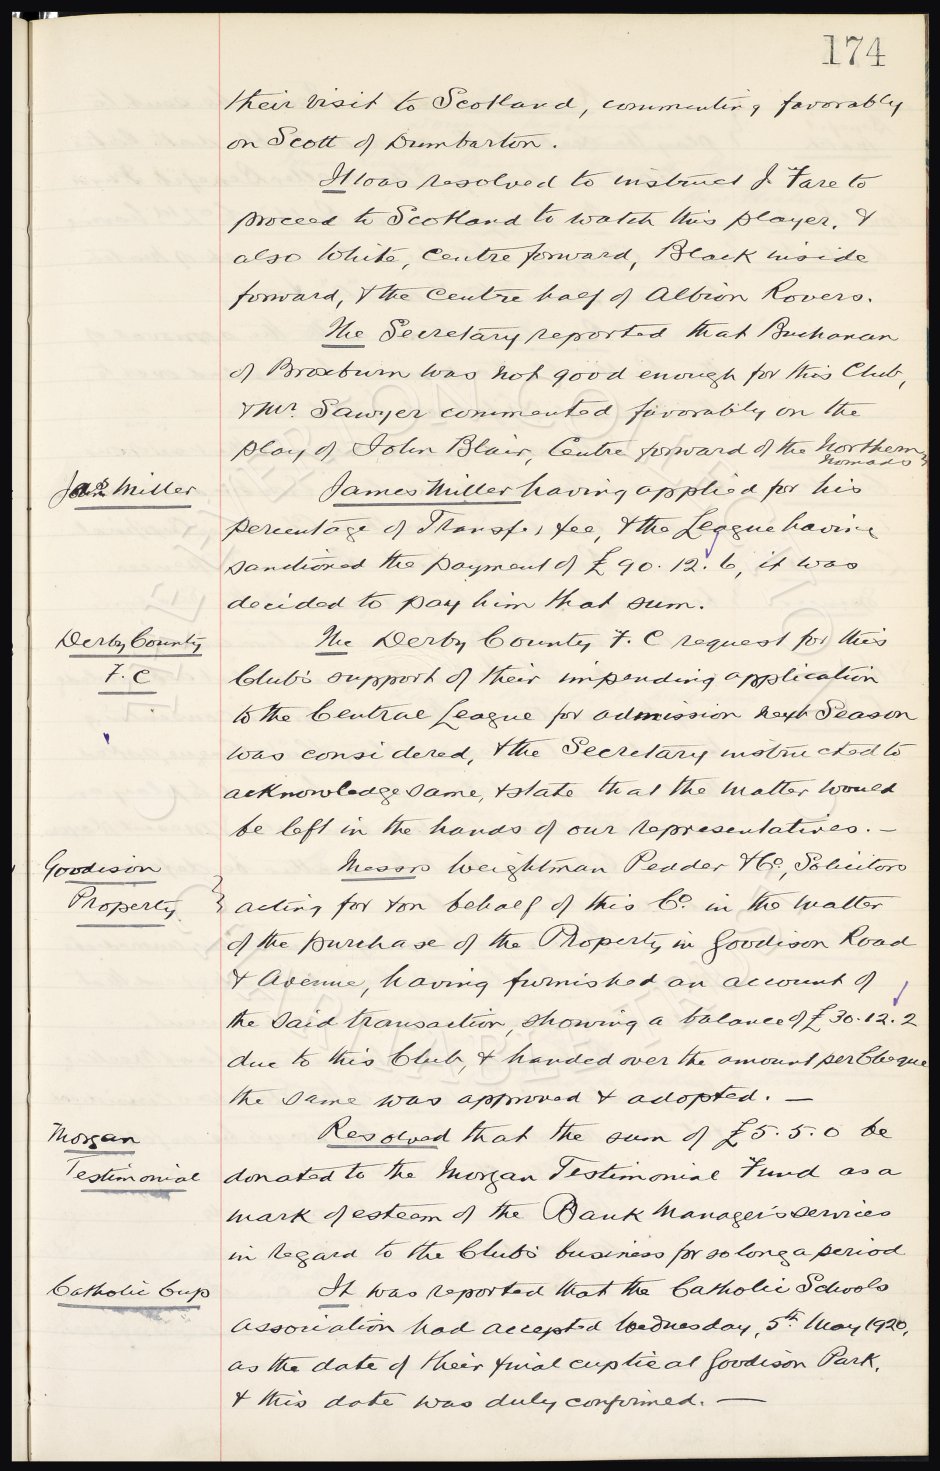 174
their visit to Scotland, commenting favorably
on Scott of Dumbarton.
It was resolved to instruct J. Fare to
proceed to Scotland to watch this player, &
also White, Centre forward, Black inside
forward, & the Centre half of Albion Rovers.
The Secretary reported that Buchanan
of Broxburn was not good enough for this Club,
& Mr. Sawyer commented favorably on the
play of John Blair, Centre forward of the Northern
Nomads
Jas Miller
James Miller having applied for his
percentage of Transfer fee, & the League having
sanctioned the payment of £90.12.6, it was
decided to pay him that sum.
Derby County
F.C
The Derby County F.C request for this
Club's support of their impending application
to the Central League for admission next Season
was considered, & the Secretary instructed to
acknowledge same, & state that the matter would
be left in the hands of our representatives. —
Goodison
Property
Messrs Weightman Pedder & Co., Solicitors
acting for & on behalf of this Co. in the matter
of the purchase of the Property in Goodison Road
& Avenue, having furnished an account of
the said transaction, showing a balance of £30.12.2
due to this Club, & handed over the amount per Cheque
the same was approved & adopted. —
Morgan
Testimonial
Resolved that the sum of £5.5.0 be
donated to the Morgan Testimonial Fund as a
mark of esteem of the Bank Manager's services
in regard to the Club's business for so long a period
Catholic Cup
It was reported that the Catholic Schools
Association had accepted Wednesday, 5th. May 1920,
as the date of their final cup tie at Goodison Park,
& this date was duly confirmed. —